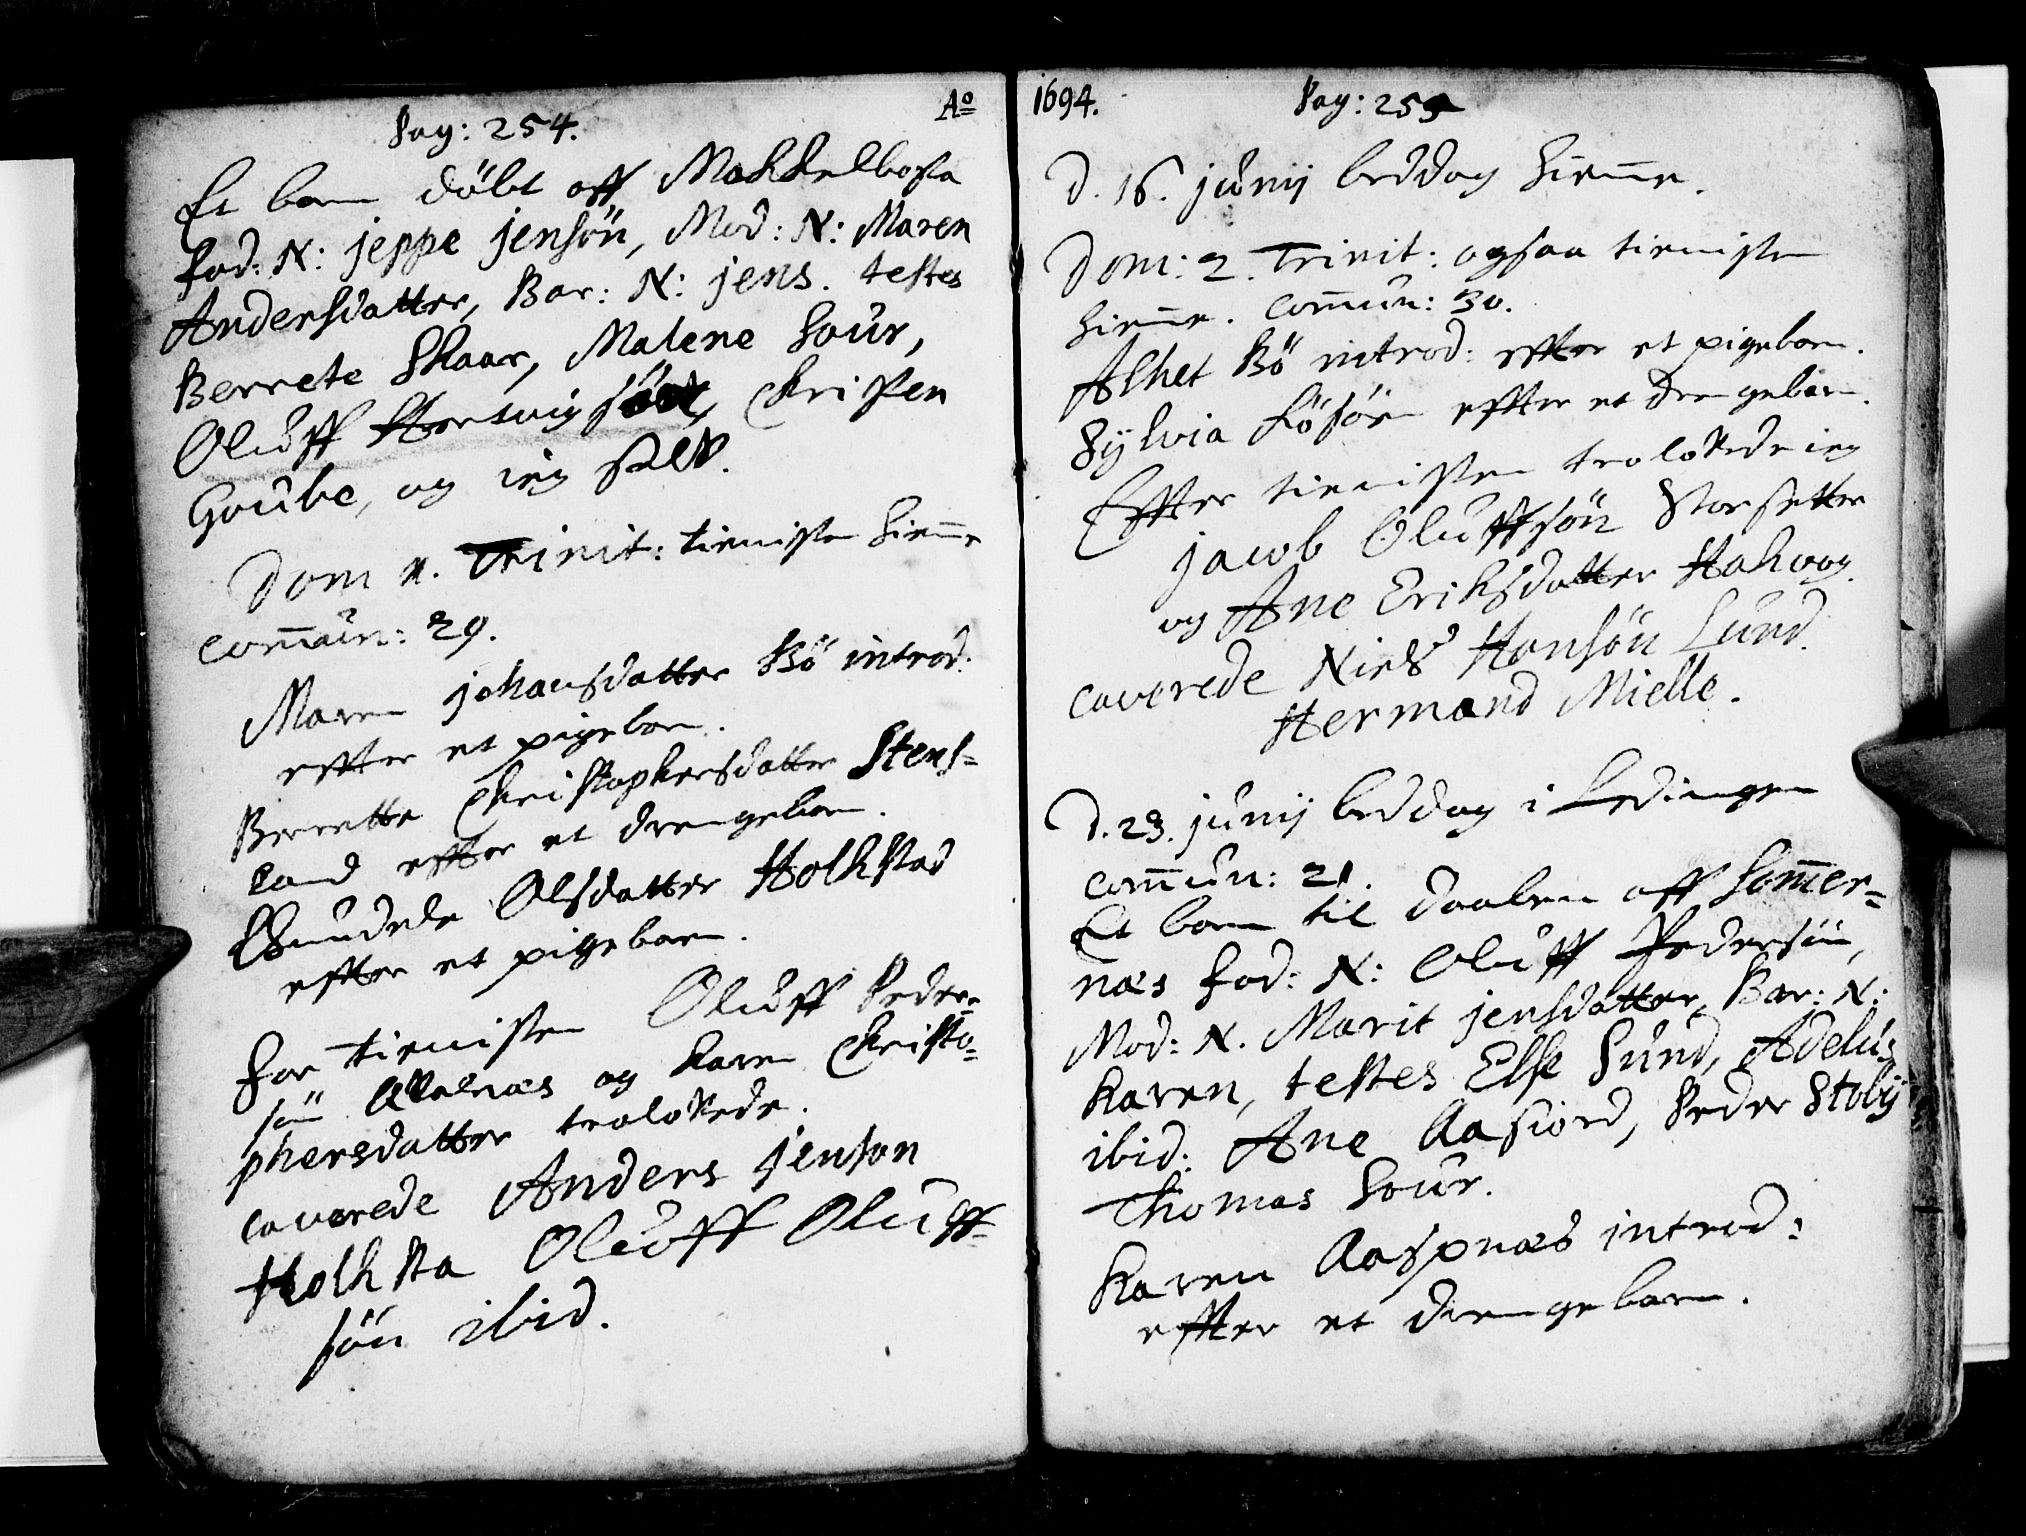 Pag: 254. Ao
Et barn döbt aff Mahkelbosta
Fad: N: jeppe jensön, Mod: N: Maren
Andersdatter, Bar: N: jens. testes
Berrete Skaar, Malene Saur,
Oluff Hartvigsön, Christen
Goube, og ieg self.
Dom 1. Trinit: tienisten hiem̄e
com̄un: 29.
Maren johansdatter Bö introd:
effter et pigebarn.
Berrette Christophersdatter Stens-
land effter et drengebarn.
Gundele Olsdatter Holkstad
effter et pigebarn.
For tienisten Oluff Peder-
sön Valnæs og Karen Christo-
phersdatter trolofvede.
caverede Anders jenson
Holksta Oluff Oluff-
sön ibid.
1694. Pag: 255
D. 16. junij beddag hiem̄e.
Dom: 2. Trinit: ogsaa tienisten
hiem̄e. Com̄un: 30.
Alhet Bö introd: effter et pigebarn.
Sylvia Rösöen effter et drengebarn.
Effter tienisten trolofvede ieg
jacob Oluffsön Storsetter
og Ane Eriksdatter Hakvog.
caverede Niels Hansön Lund.
Hermand Mielle.
D. 23. junij beddag i Lødingen
com̄un: 21.
Et barn til daaben aff Som̄er-
næs Fad: N: Oluff Pedersön,
Mod: N. Marit jensdatter, Bar: N:
Karen, testes Else Sund, Adelus
ibid: Ane Aafiord, Peder Stoby
Thomas Saur.
Karen Aaspnæs introd:
effter et drengebarn.